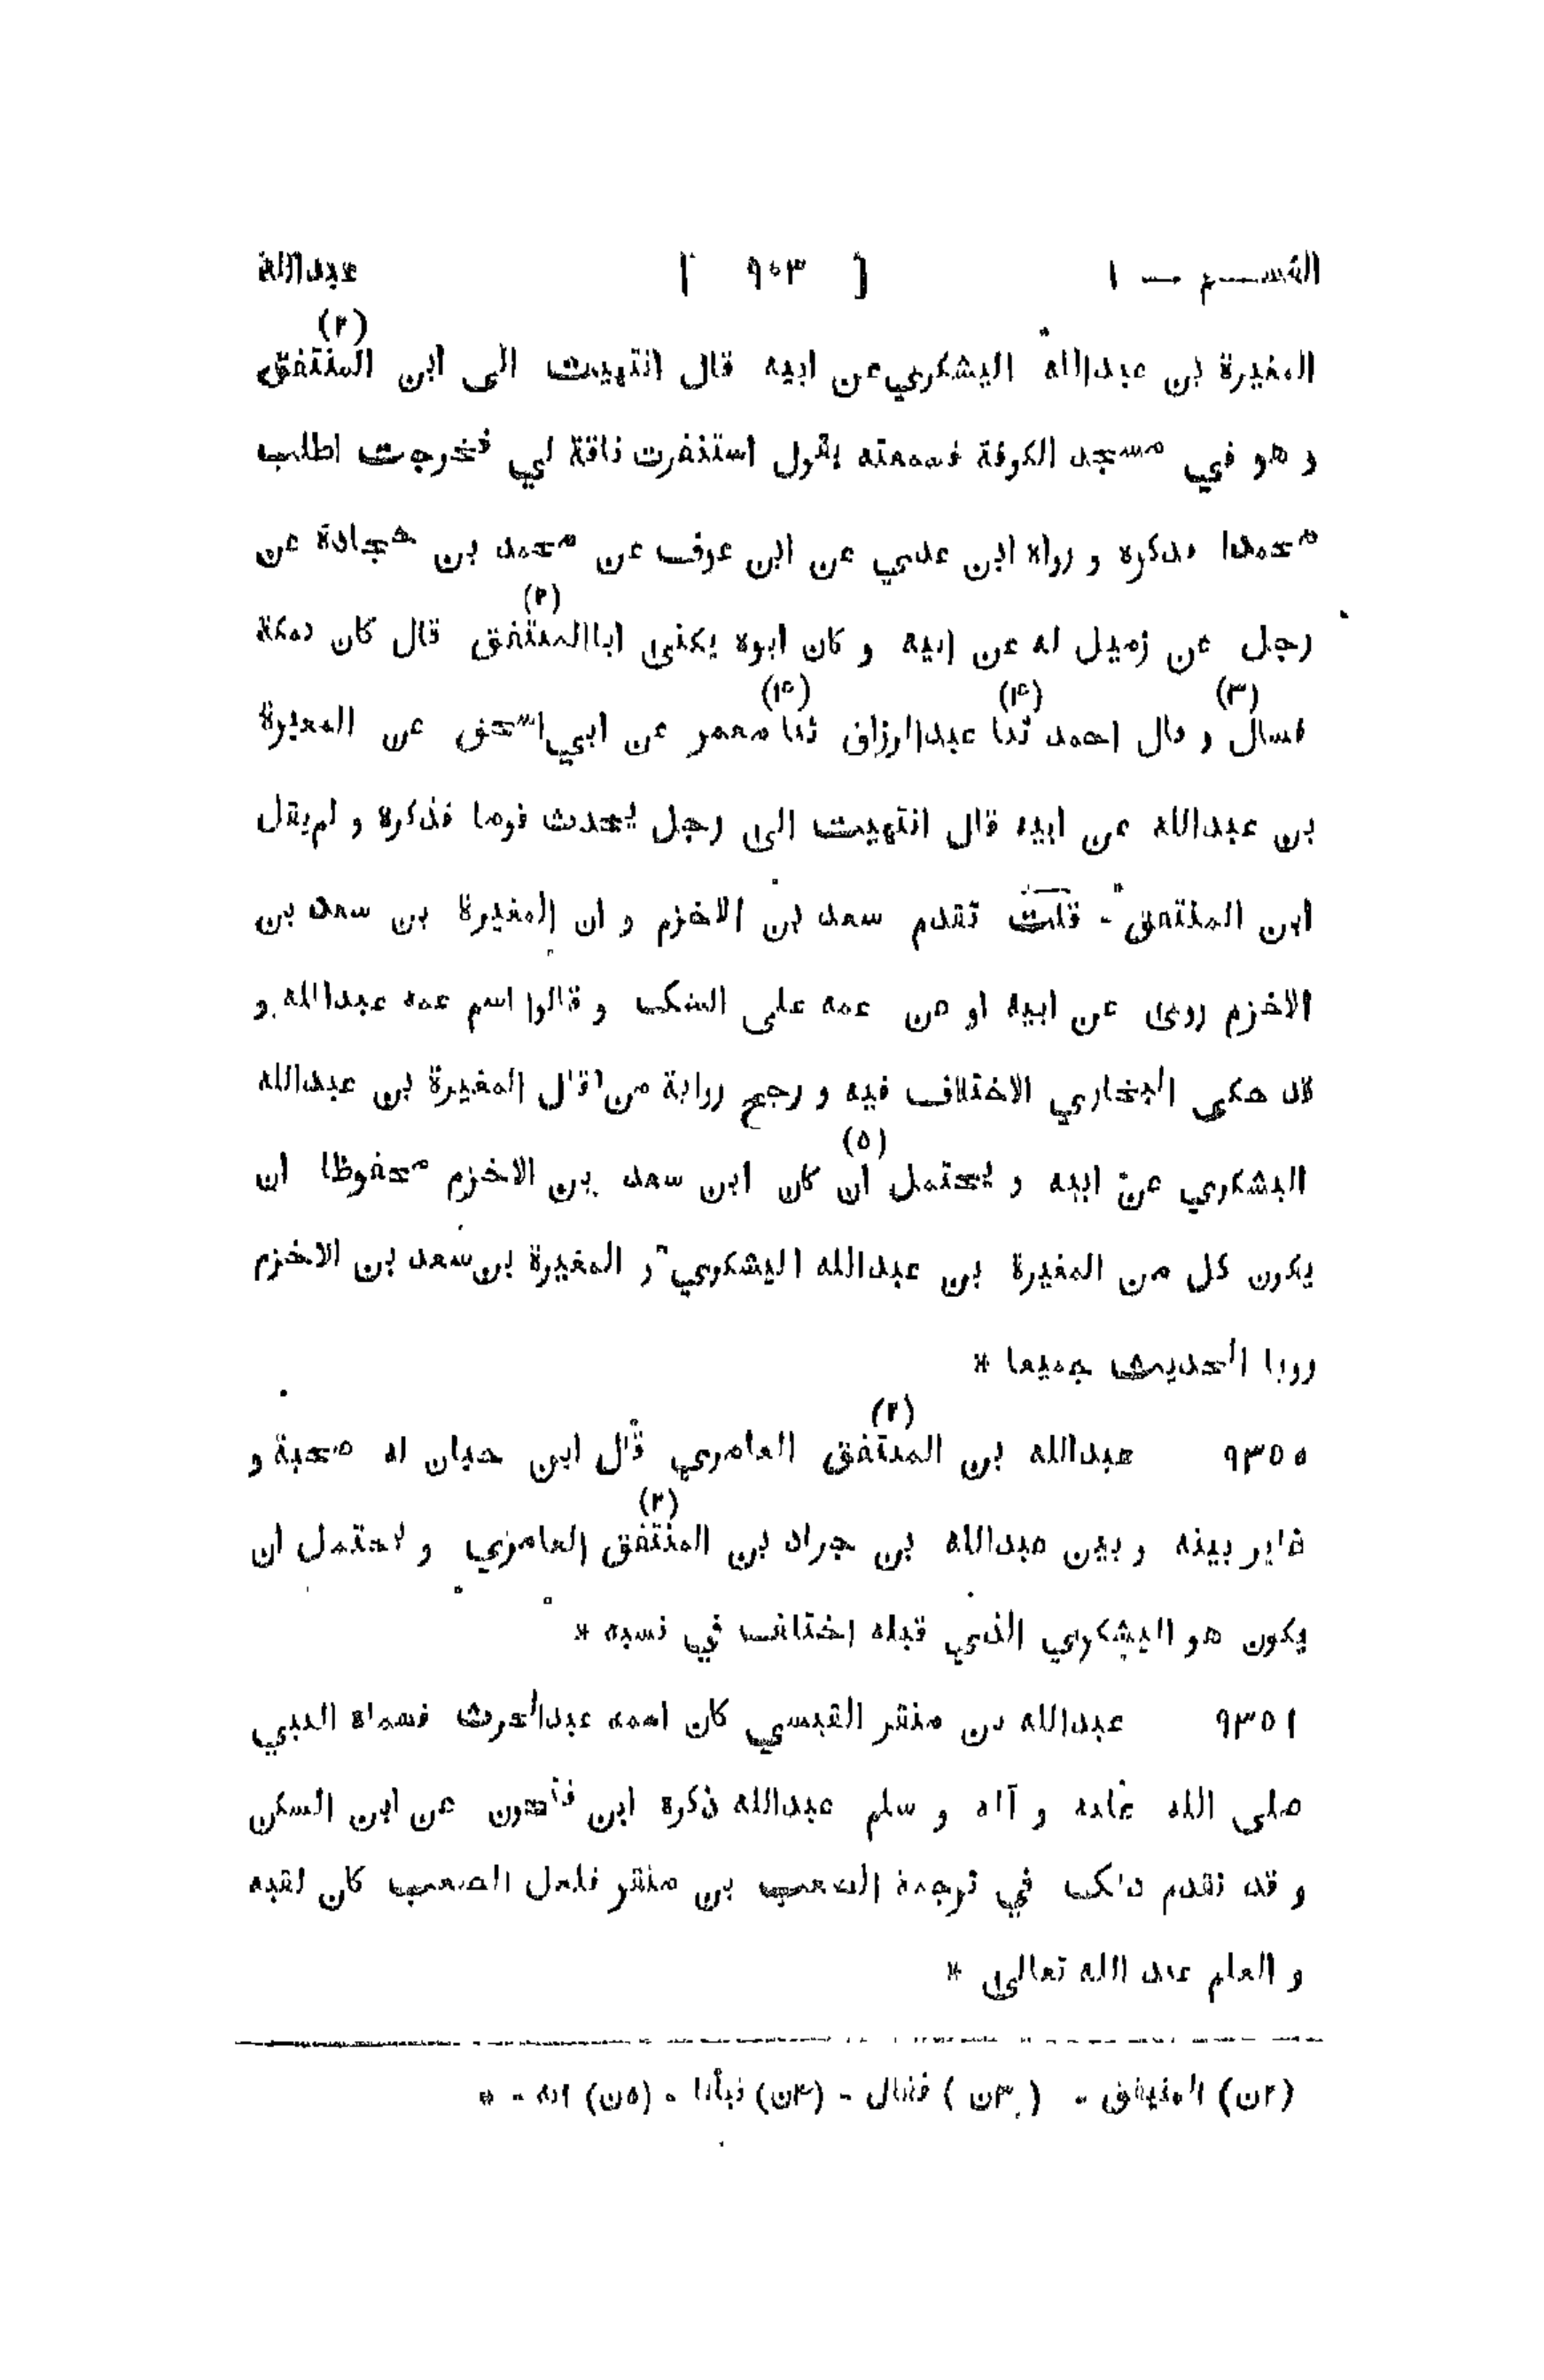 القسم — ١ [ ٩٠٣ ] عبدالله
المغيرة بن عبدالله اليشكري عن ابيه قال انتهيت الى ابن المنتفق (٢)
و هو في مسجد الكوفة فسمعته يقول استنفرت ناقة لي فخرجت اطلب
محمدا فذكره و رواه ابن عدي عن ابن عوف عن محمد بن حجادة عن
رجل عن زميل له عن ابيه و كان ابوه يكنى اباالمنتفق (٢) قال كان بمكة
فسال (٣) و قال احمد ثنا (۴) عبدالرزاق ثنا (۴) معمر عن ابي اسحق عن المغيرة
بن عبدالله عن ابيه قال انتهيت الى رجل يحدث قوما فذكره و لم يقل
ابن المنتفق - قلت تقدم سعد بن الاخزم و ان المغيرة بن سعد بن
الاخزم روى عن ابيه او عن عمه على الشك و قالوا اسم عمه عبدالله و
قد حكى البخاري الاختلاف فيه و رجح رواية من قال المغيرة بن عبدالله
اليشكري عن ابيه و يحتمل ان (٥) كان ابن سعد بن الاخزم محفوظا ان
يكون كل من المغيرة بن عبدالله اليشكري و المغيرة بن سعد بن الاخزم
رويا الحديث جميعا *
٩٣٥٠ عبدالله بن المنتفق (٢) العامري قال ابن حبان له صحبة و
غاير بينه و بين عبدالله بن جراد بن المنتفق (٢) العامري و يحتمل ان
يكون هو اليشكري الذي قبله اختلف في نسبه *
٩٣٥١ عبدالله بن منقر القيسي كان اسمه عبدالحرث فسماه النبي
صلى الله عليه و آله و سلم عبدالله ذكره ابن فتحون عن ابن السكن
و قد تقدم ذلك في ترجمة الصعب بن منقر فلعل الصعب كان لقبه
و العلم عند الله تعالى *
(٢ن) المنيفق - (٣ن) فقال - (۴ن) نبأنا - (٥ن) انه - *